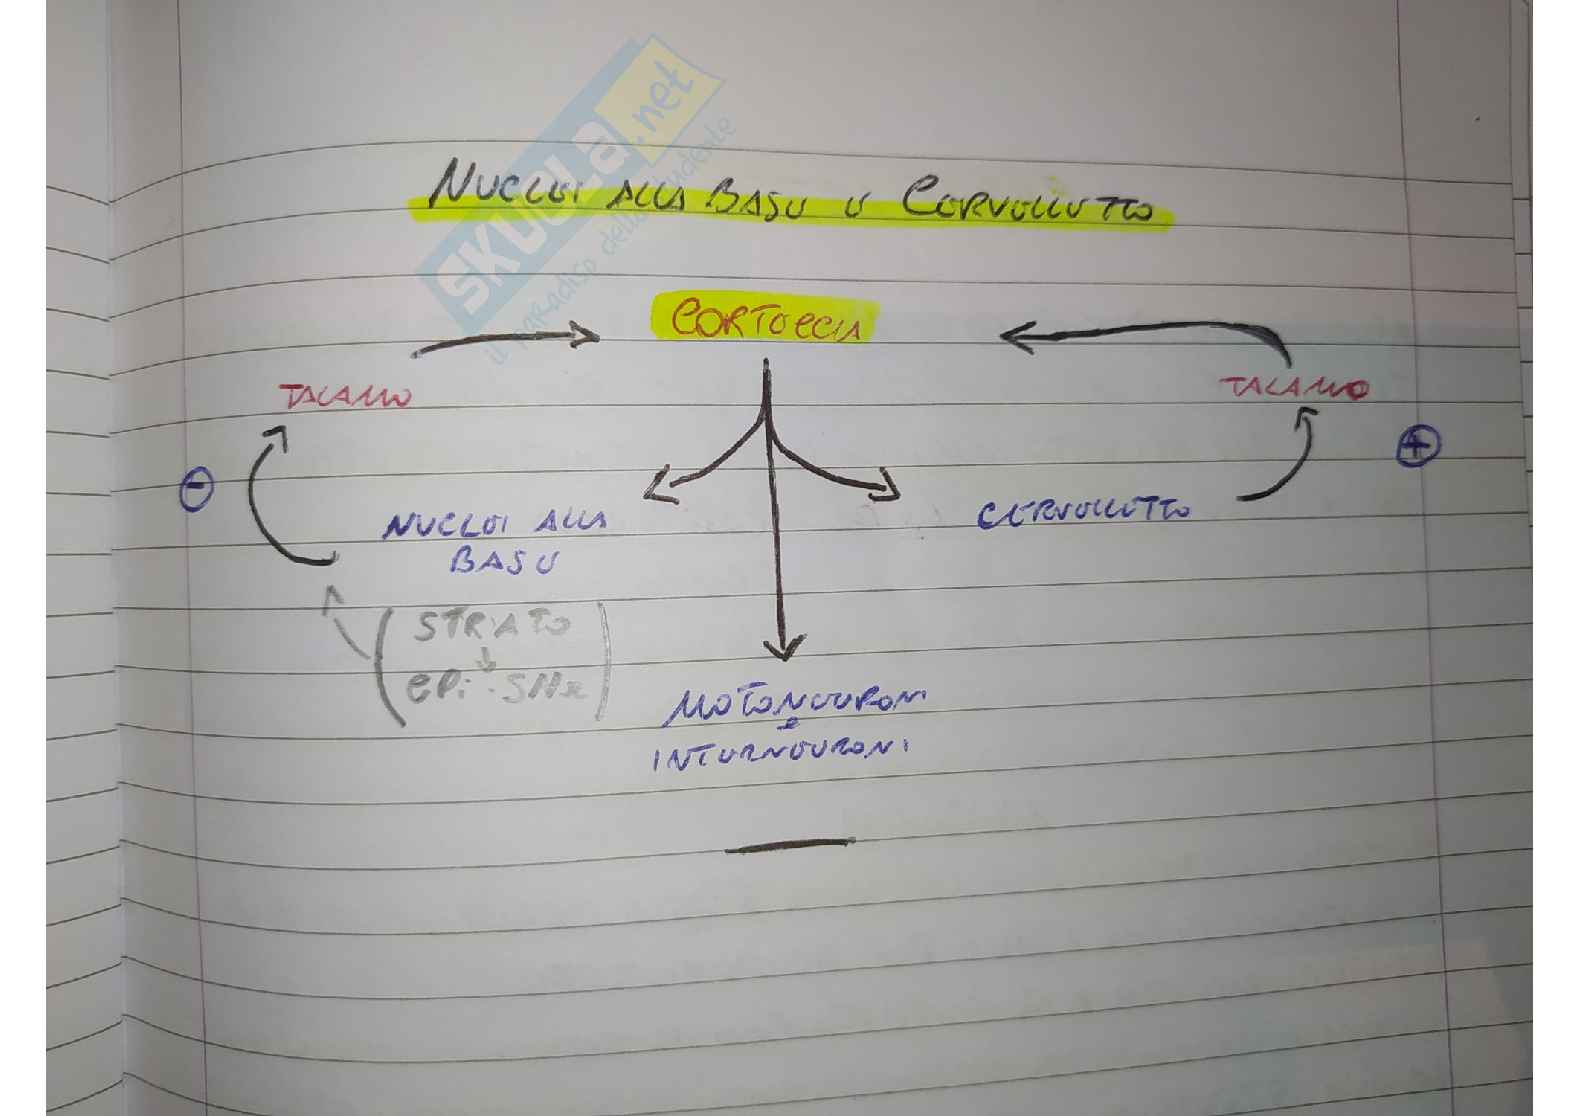 NUCLEI ALLA BASE E CERVELLETTO
SKUOLA.net
il paradiso dello studente
CORTECCIA
TALAMO
TALAMO
-
+
NUCLEI ALLA
BASE
CERVELLETTO
STRIATO
GPi · SNr
MOTONEURONI
e
INTERNEURONI